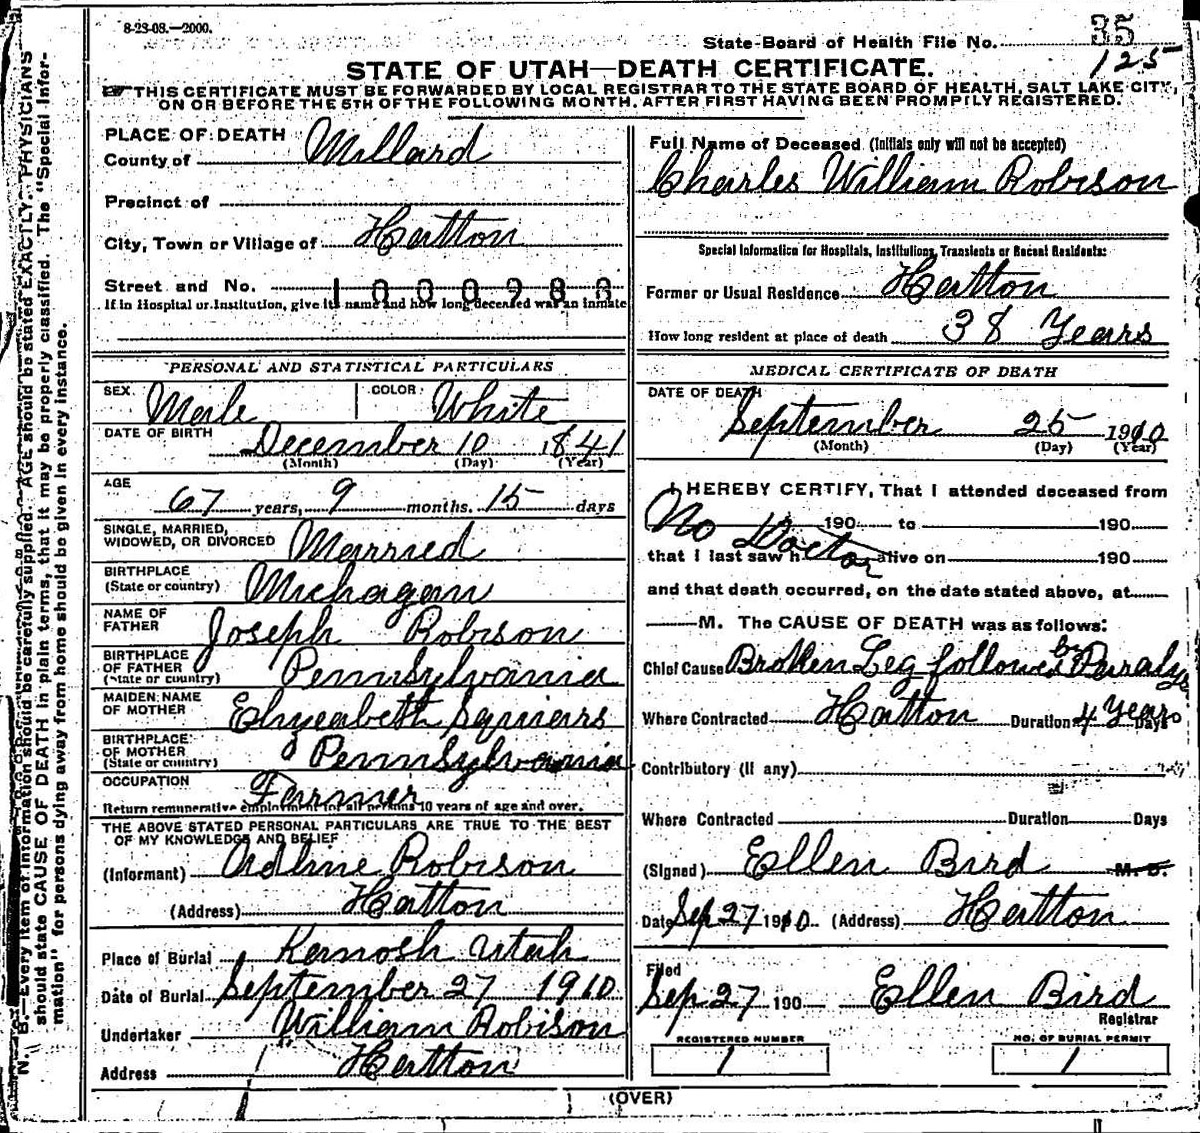 8-23-08.—2000.
State Board of Health File No. 35
125
STATE OF UTAH—DEATH CERTIFICATE.
THIS CERTIFICATE MUST BE FORWARDED BY LOCAL REGISTRAR TO THE STATE BOARD OF HEALTH, SALT LAKE CITY,
ON OR BEFORE THE 5TH OF THE FOLLOWING MONTH, AFTER FIRST HAVING BEEN PROMPTLY REGISTERED.
N. B.—Every item of information should be carefully supplied. AGE should be stated EXACTLY. PHYSICIANS
should state CAUSE OF DEATH in plain terms, that it may be properly classified. The "Special Infor-
mation" for persons dying away from home should be given in every instance.
PLACE OF DEATH
County of Millard
Precinct of
City, Town or Village of Hatton
Street and No. 1000988
If in Hospital or Institution, give its name and how long deceased was an inmate
PERSONAL AND STATISTICAL PARTICULARS
SEX Male COLOR White
DATE OF BIRTH December 10 1841
(Month) (Day) (Year)
AGE
67 years, 9 months. 15 days
SINGLE, MARRIED,
WIDOWED, OR DIVORCED Married
BIRTHPLACE
(State or country) Michagan
NAME OF
FATHER Joseph Robison
BIRTHPLACE
OF FATHER
(State or country) Pennsylvania
MAIDEN NAME
OF MOTHER Elizeabeth Squiars
BIRTHPLACE
OF MOTHER
(State or country) Pennsylvania
OCCUPATION Farmer
Return remunerative employment for all persons 10 years of age and over.
THE ABOVE STATED PERSONAL PARTICULARS ARE TRUE TO THE BEST
OF MY KNOWLEDGE AND BELIEF
(Informant) Adline Robison
(Address) Hatton
Place of Burial Kanosh Utah
Date of Burial September 27 1910
Undertaker William Robison
Address Hatton
Full Name of Deceased (Initials only will not be accepted)
Charles William Robison
Special Information for Hospitals, Institutions, Transients or Recent Residents:
Former or Usual Residence Hatton
How long resident at place of death 38 Years
MEDICAL CERTIFICATE OF DEATH
DATE OF DEATH
September 25 1910
(Month) (Day) (Year)
I HEREBY CERTIFY, That I attended deceased from
No Doctor 190 to 190
that I last saw h alive on 190
and that death occurred, on the date stated above, at
M. The CAUSE OF DEATH was as follows:
Chief Cause Broken Leg followed by
Where Contracted Hatton Duration 4 Years Days
Contributory (if any)
Where Contracted Duration Days
(Signed) Ellen Bird M. D.
Date Sep 27 1910 (Address) Hatton
Filed
Sep 27 190 Ellen Bird
Registrar
REGISTERED NUMBER
1
NO. OF BURIAL PERMIT
1
(OVER)